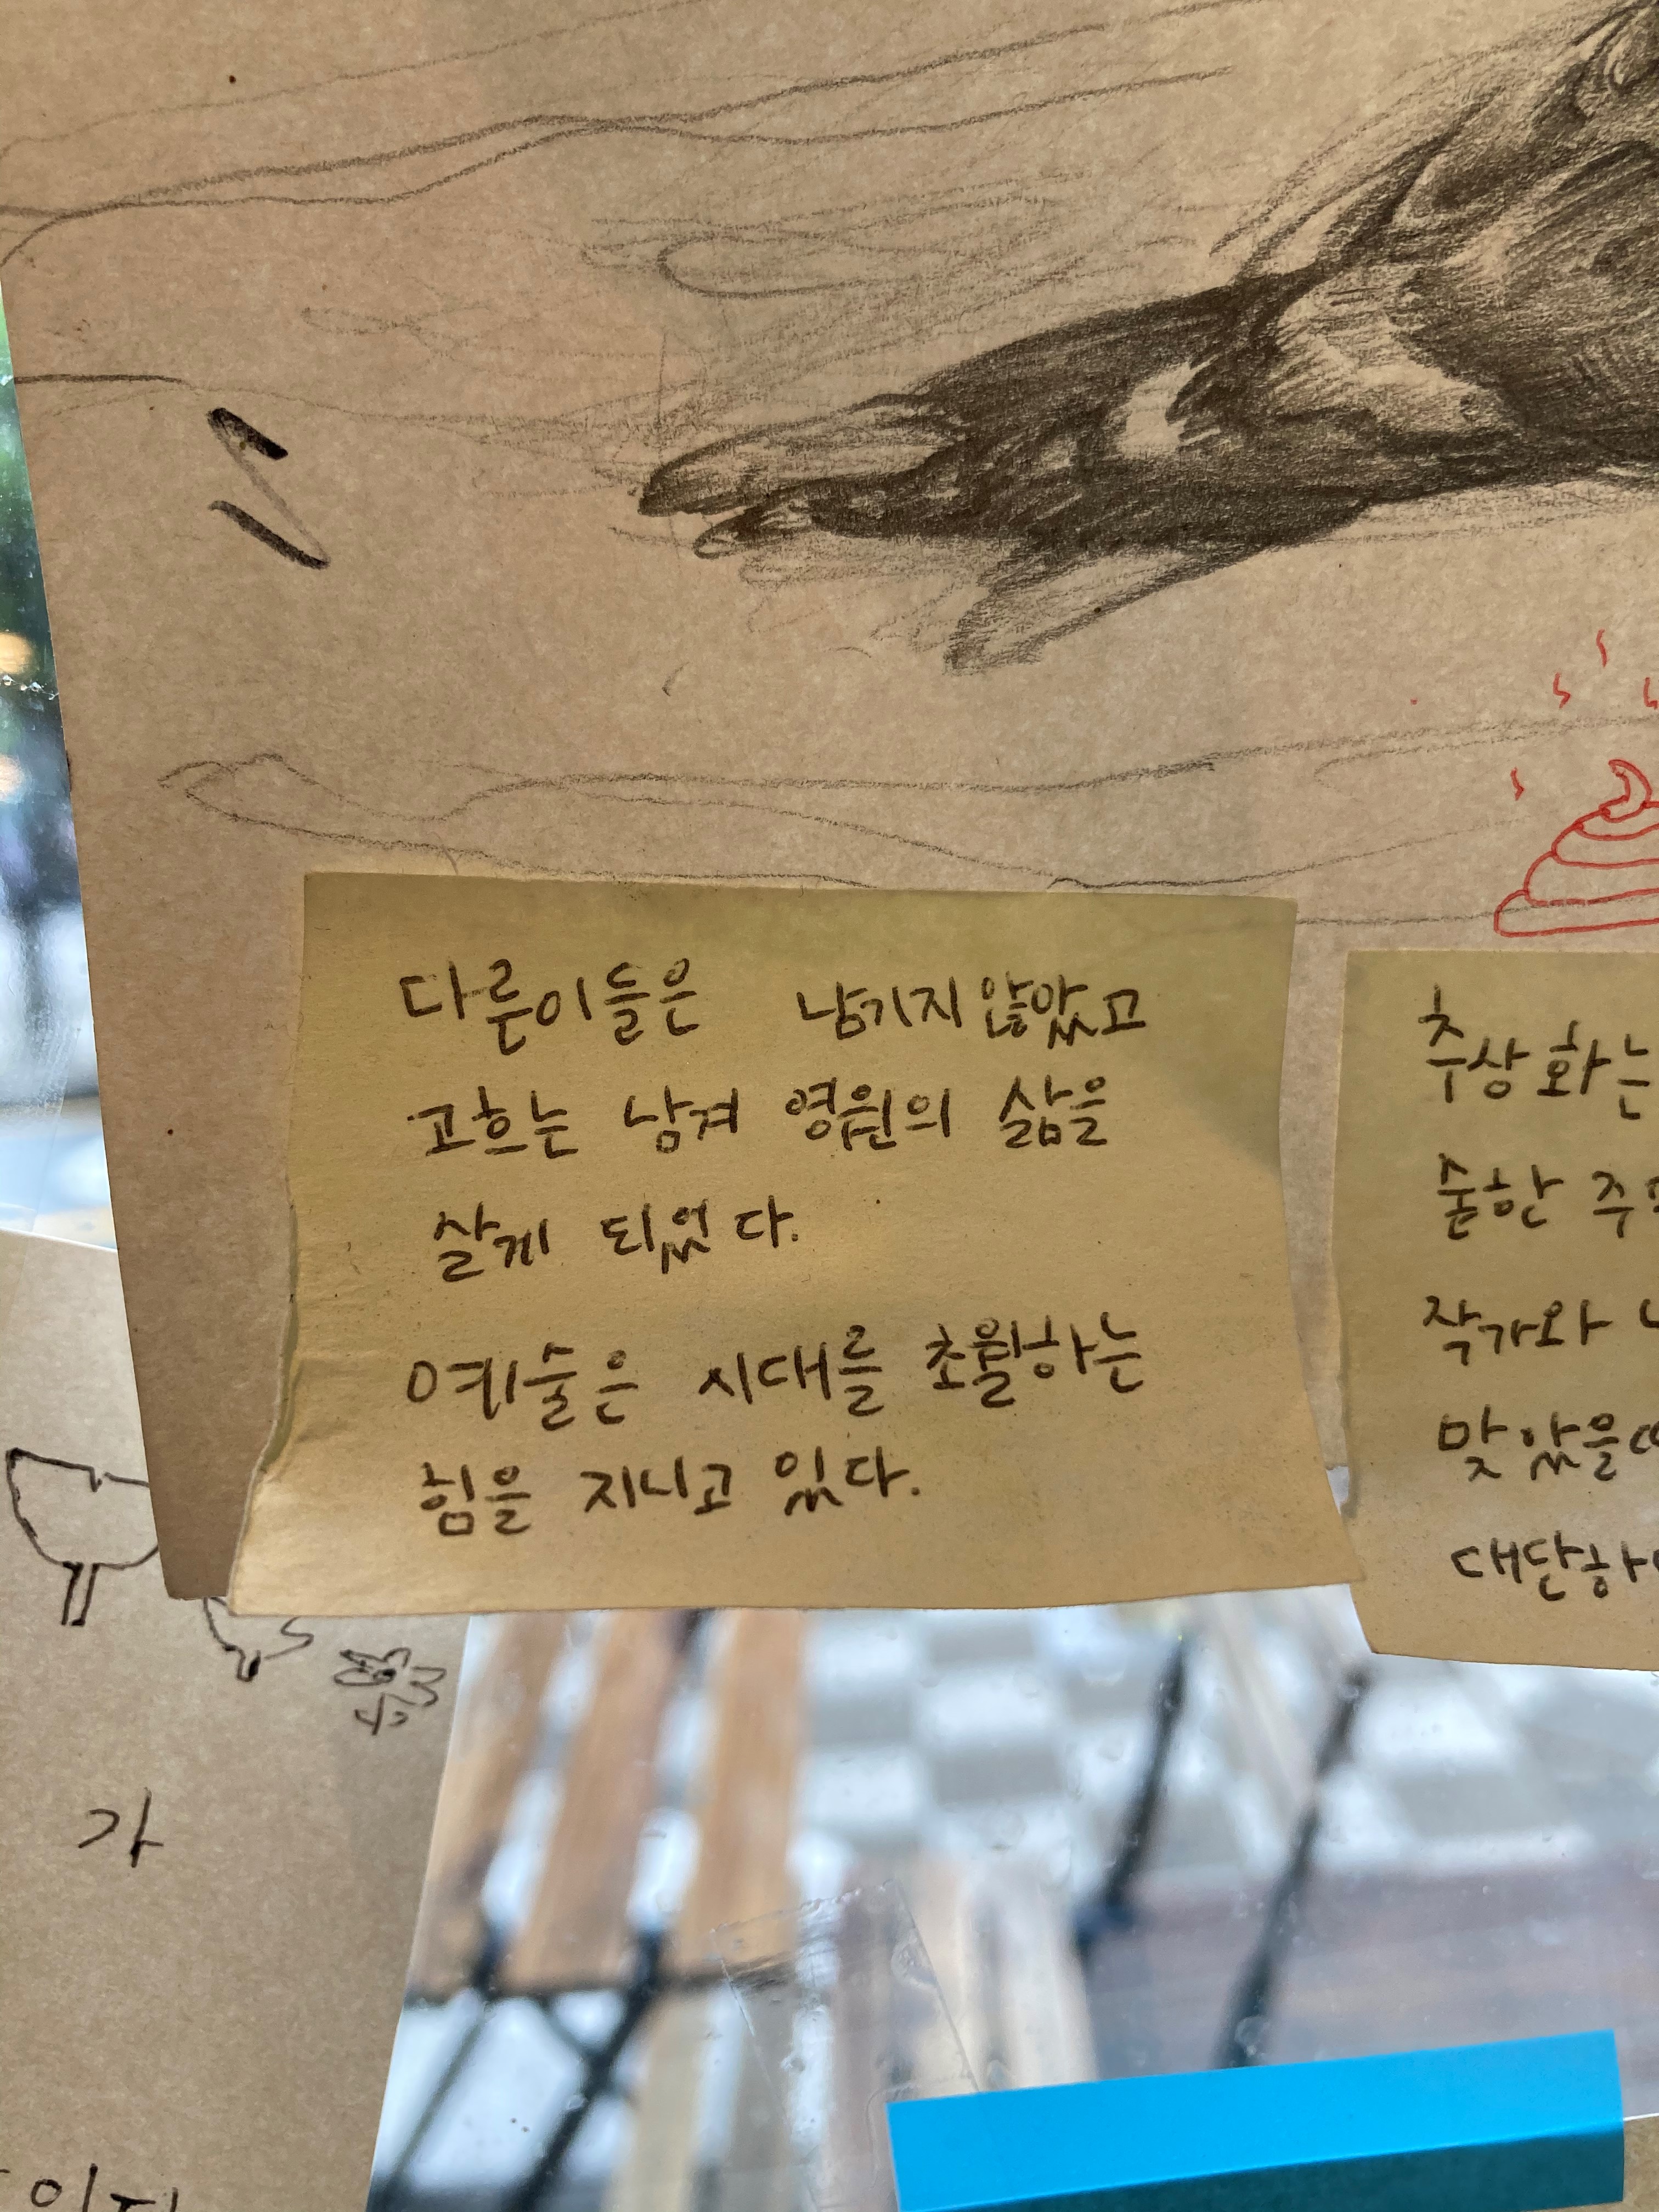 다른이들은 남기지 않았고
고흐는 남겨 영원의 삶을
살게 되었다.
예술은 시대를 초월하는
힘을 지니고 있다.
추상화는
출한 주
작가와
맞았을
대단하
가